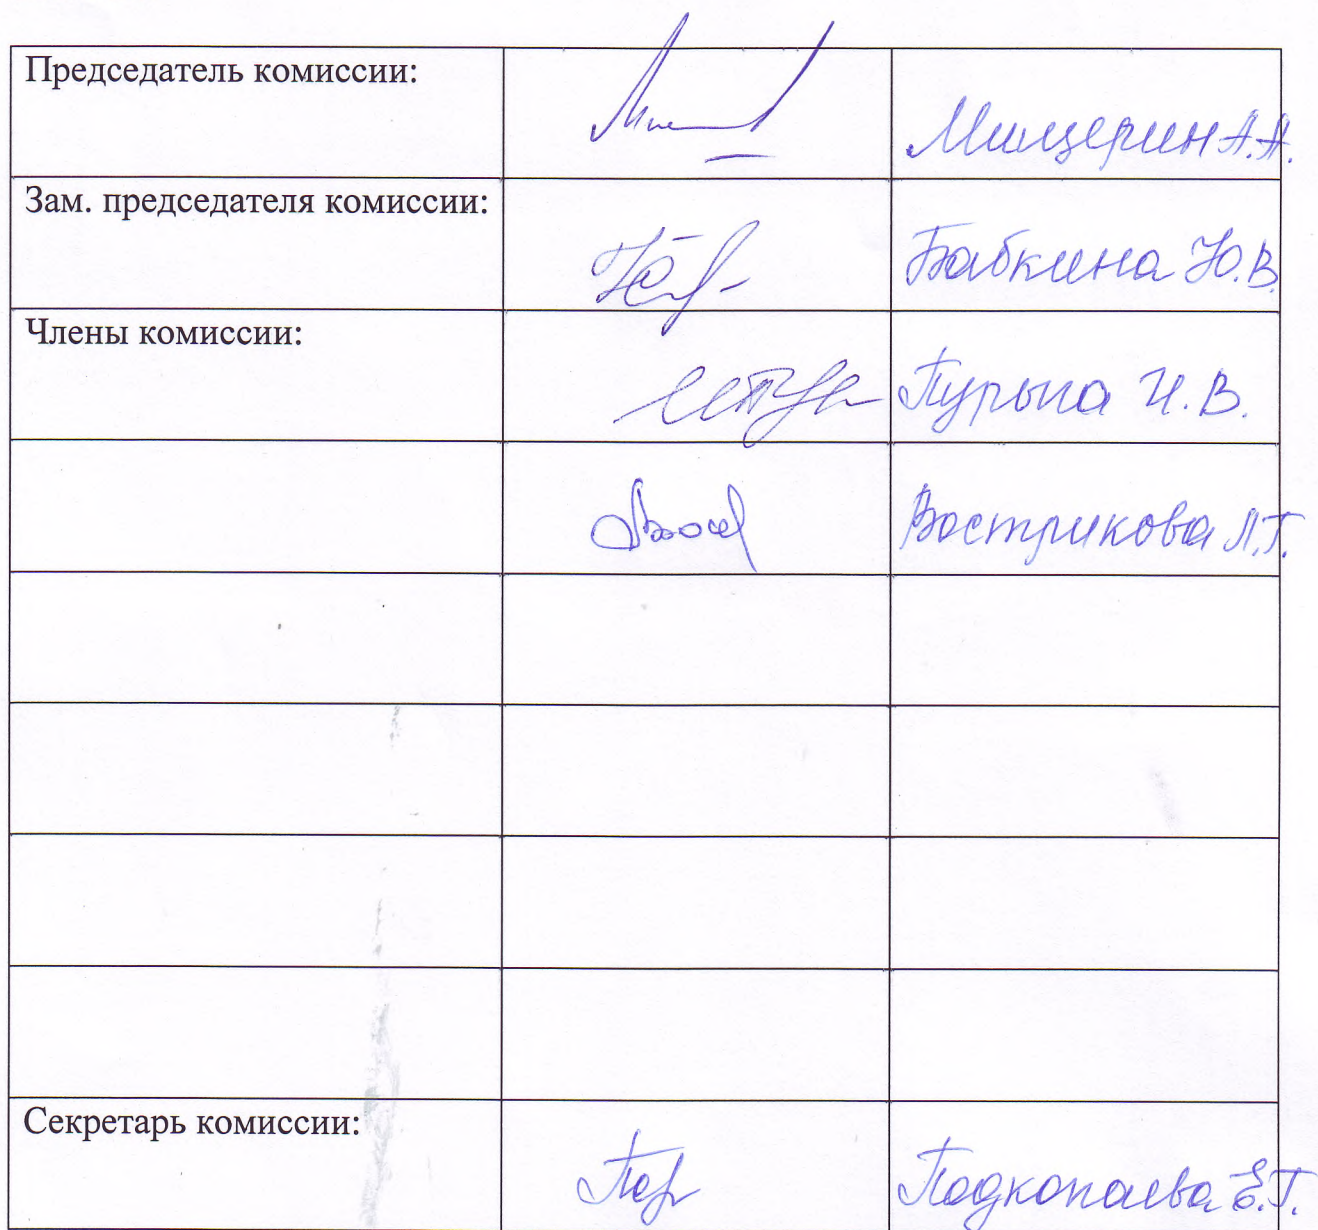 Председатель комиссии:
Мищерин А.А.
Зам. председателя комиссии:
Бабкина Ю.В.
Члены комиссии:
Пурыга И.В.
Вострикова Л.Г.
Секретарь комиссии:
Подкопаева Е.Г.